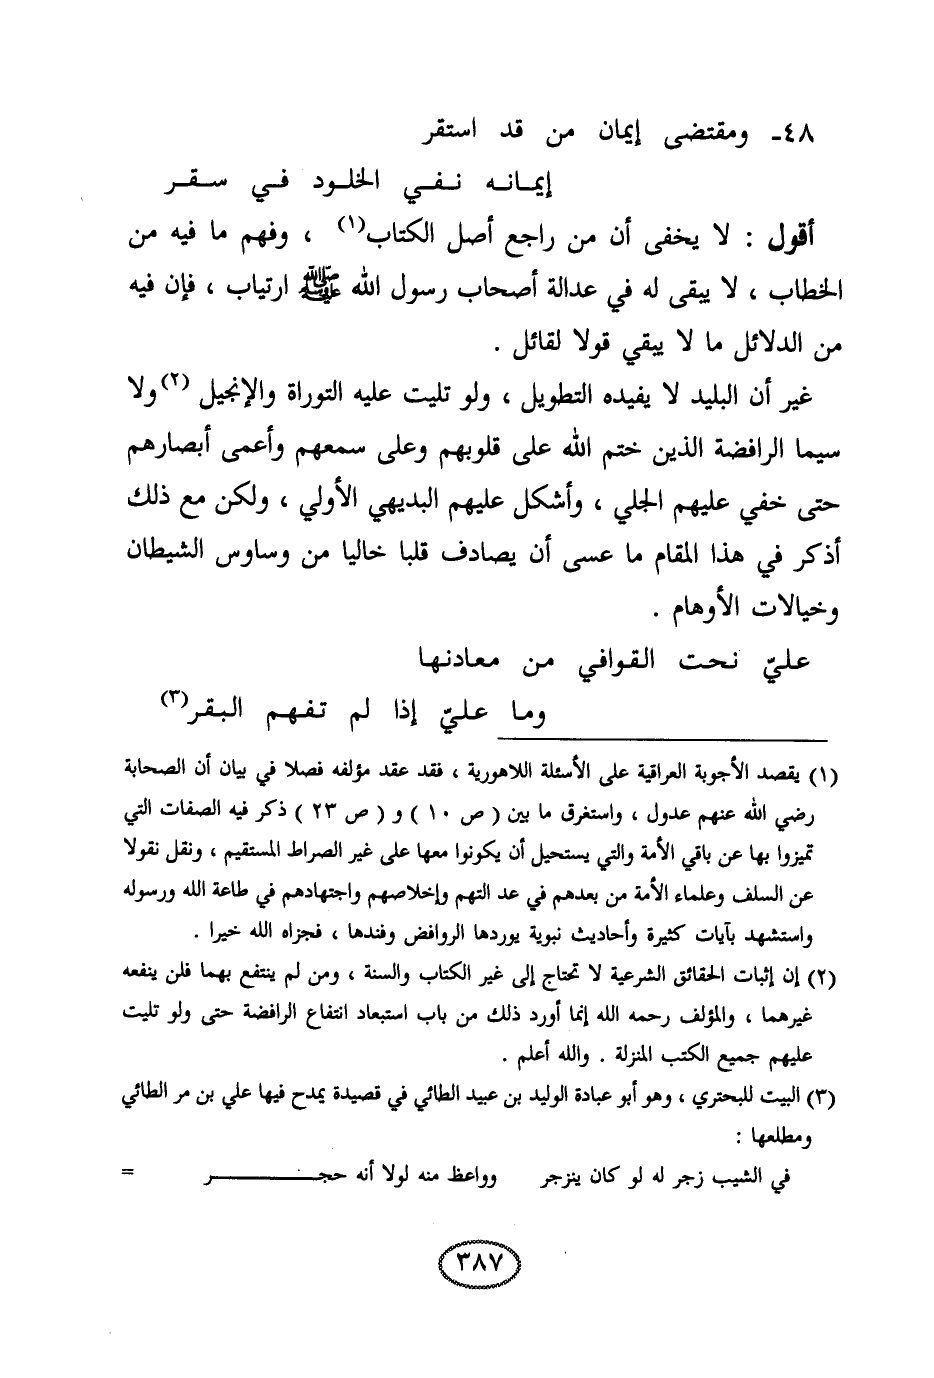 ٤٨ـ ومقتضى إيمان من قد استقر
إيمانه نفي الخلود في سقر
أقول : لا يخفى أن من راجع أصل الكتاب(١) ، وفهم ما فيه من
الخطاب ، لا يبقى له في عدالة أصحاب رسول الله ﷺ ارتياب ، فإن فيه
من الدلائل ما لا يبقي قولا لقائل .
غير أن البليد لا يفيده التطويل ، ولو تليت عليه التوراة والإنجيل (٢) ولا
سيما الرافضة الذين ختم الله على قلوبهم وعلى سمعهم وأعمى أبصارهم
حتى خفي عليهم الجلي ، وأشكل عليهم البديهي الأولي ، ولكن مع ذلك
أذكر في هذا المقام ما عسى أن يصادف قلبا خاليا من وساوس الشيطان
وخيالات الأوهام .
عليّ نحت القوافي من معادنها
وما عليّ إذا لم تفهم البقر(٣)
(١) يقصد الأجوبة العراقية على الأسئلة اللاهورية ، فقد عقد مؤلفه فصلا في بيان أن الصحابة
رضي الله عنهم عدول ، واستغرق ما بين ( ص ١٠ ) و ( ص ٢٣ ) ذكر فيه الصفات التي
تميزوا بها عن باقي الأمة والتي يستحيل أن يكونوا معها على غير الصراط المستقيم ، ونقل نقولا
عن السلف وعلماء الأمة من بعدهم في عد التهم وإخلاصهم واجتهادهم في طاعة الله ورسوله
واستشهد بآيات كثيرة وأحاديث نبوية يوردها الروافض وفندها ، فجزاه الله خيرا .
(٢) إن إثبات الحقائق الشرعية لا تحتاج إلى غير الكتاب والسنة ، ومن لم ينتفع بهما فلن ينفعه
غيرهما ، والمؤلف رحمه الله إنما أورد ذلك من باب استبعاد انتفاع الرافضة حتى ولو تليت
عليهم جميع الكتب المنزلة . والله أعلم .
(٣) البيت للبحتري ، وهو أبو عبادة الوليد بن عبيد الطائي في قصيدة يمدح فيها علي بن مر الطائي
ومطلعها :
في الشيب زجر له لو كان ينزجر وواعظ منه لولا أنه حجـــــر =
٣٨٧